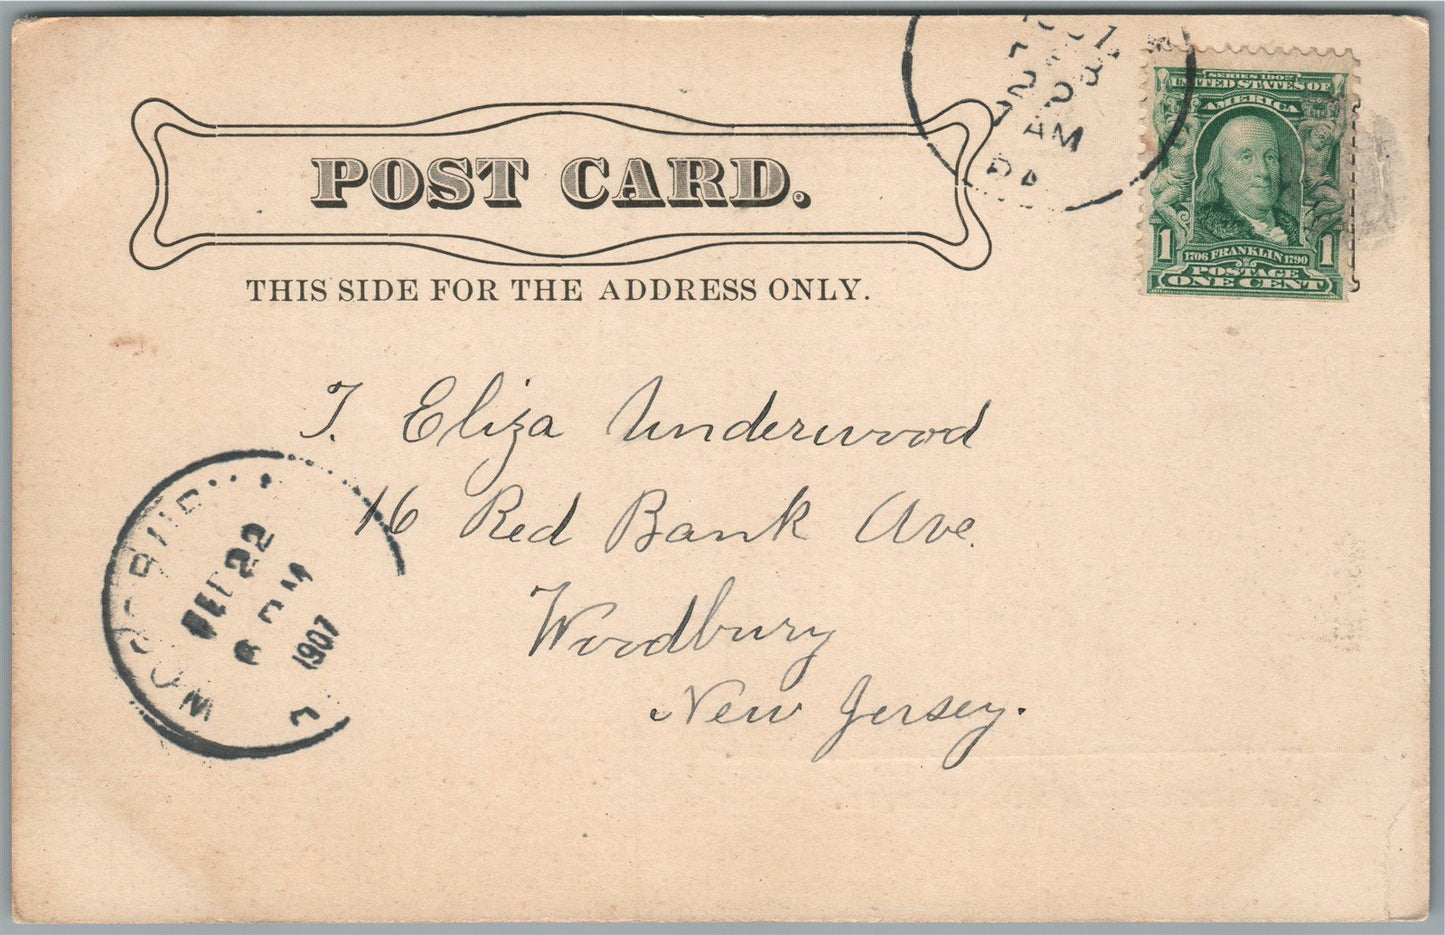 POST CARD.
THIS SIDE FOR THE ADDRESS ONLY.
AM
PA
SERIES 1902
UNITED STATES OF
AMERICA
1 1706 FRANKLIN 1790 1
POSTAGE
ONE CENT
T. Eliza Underwood
16 Red Bank Ave.
Woodbury
New Jersey.
WOODBURY
DEC 22
1907